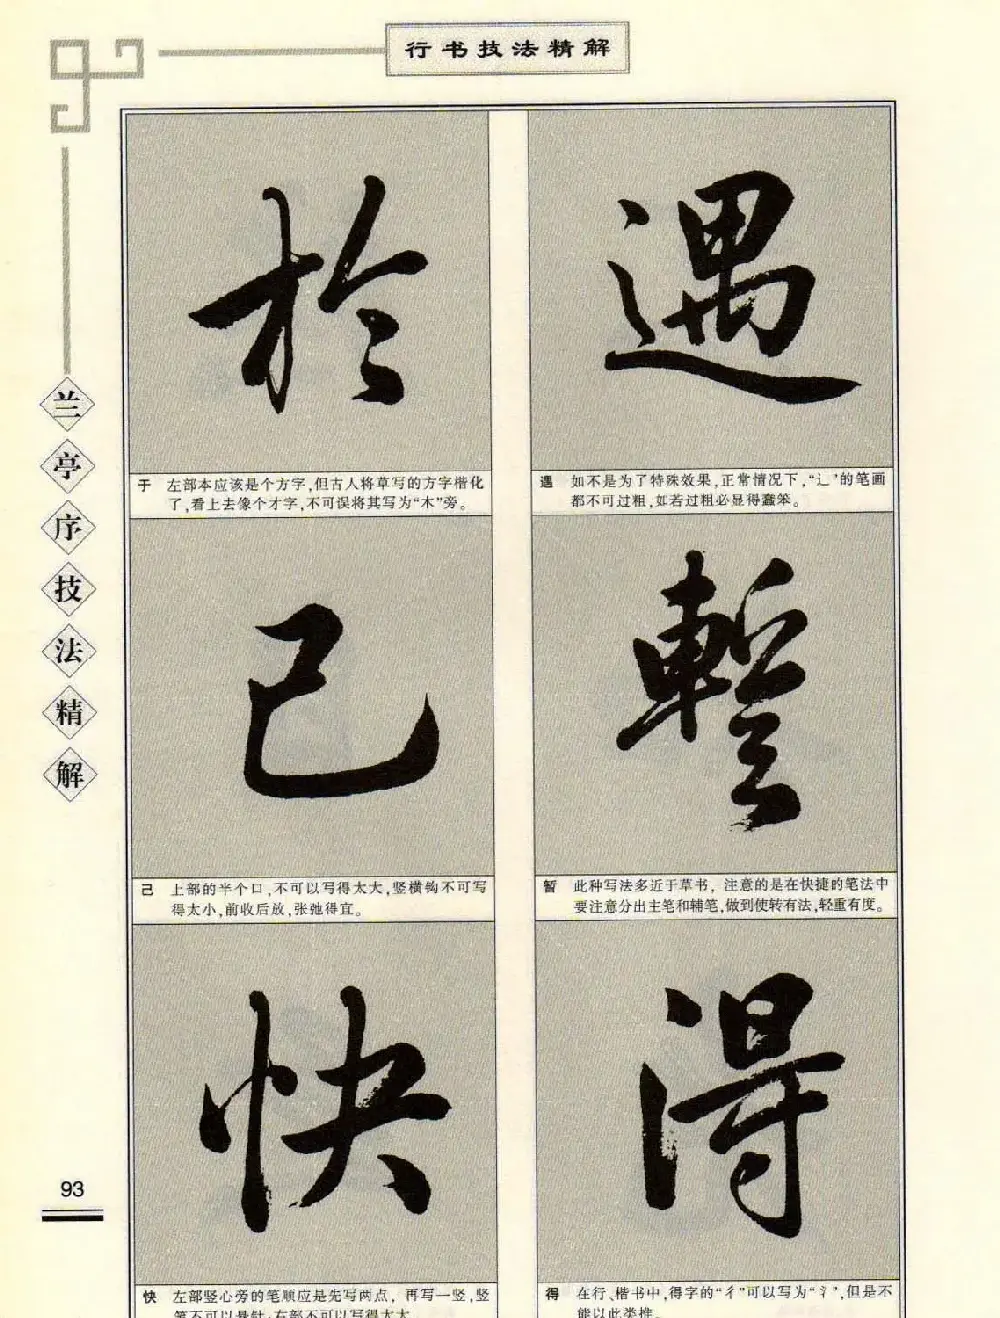 行书技法精解
兰亭序技法精解
遇
遇 如不是为了特殊效果,正常情况下,“辶”的笔画
都不可过粗,如若过粗必显得蠢笨。
暫
暂 此种写法多近于草书,注意的是在快捷的笔法中
要注意分出主笔和辅笔,做到使转有法,轻重有度。
得
得 在行、楷书中,得字的“彳”可以写为“氵”,但是不
能以此类推。
於
于 左部本应该是个方字,但古人将草写的方字楷化
了,看上去像个才字,不可误将其写为“木”旁。
己
己 上部的半个口,不可以写得太大,竖横钩不可写
得太小,前收后放,张弛得宜。
快
快 左部竖心旁的笔顺应是先写两点,再写一竖,竖
笔不可以悬针,右部不可以写得太大。
93